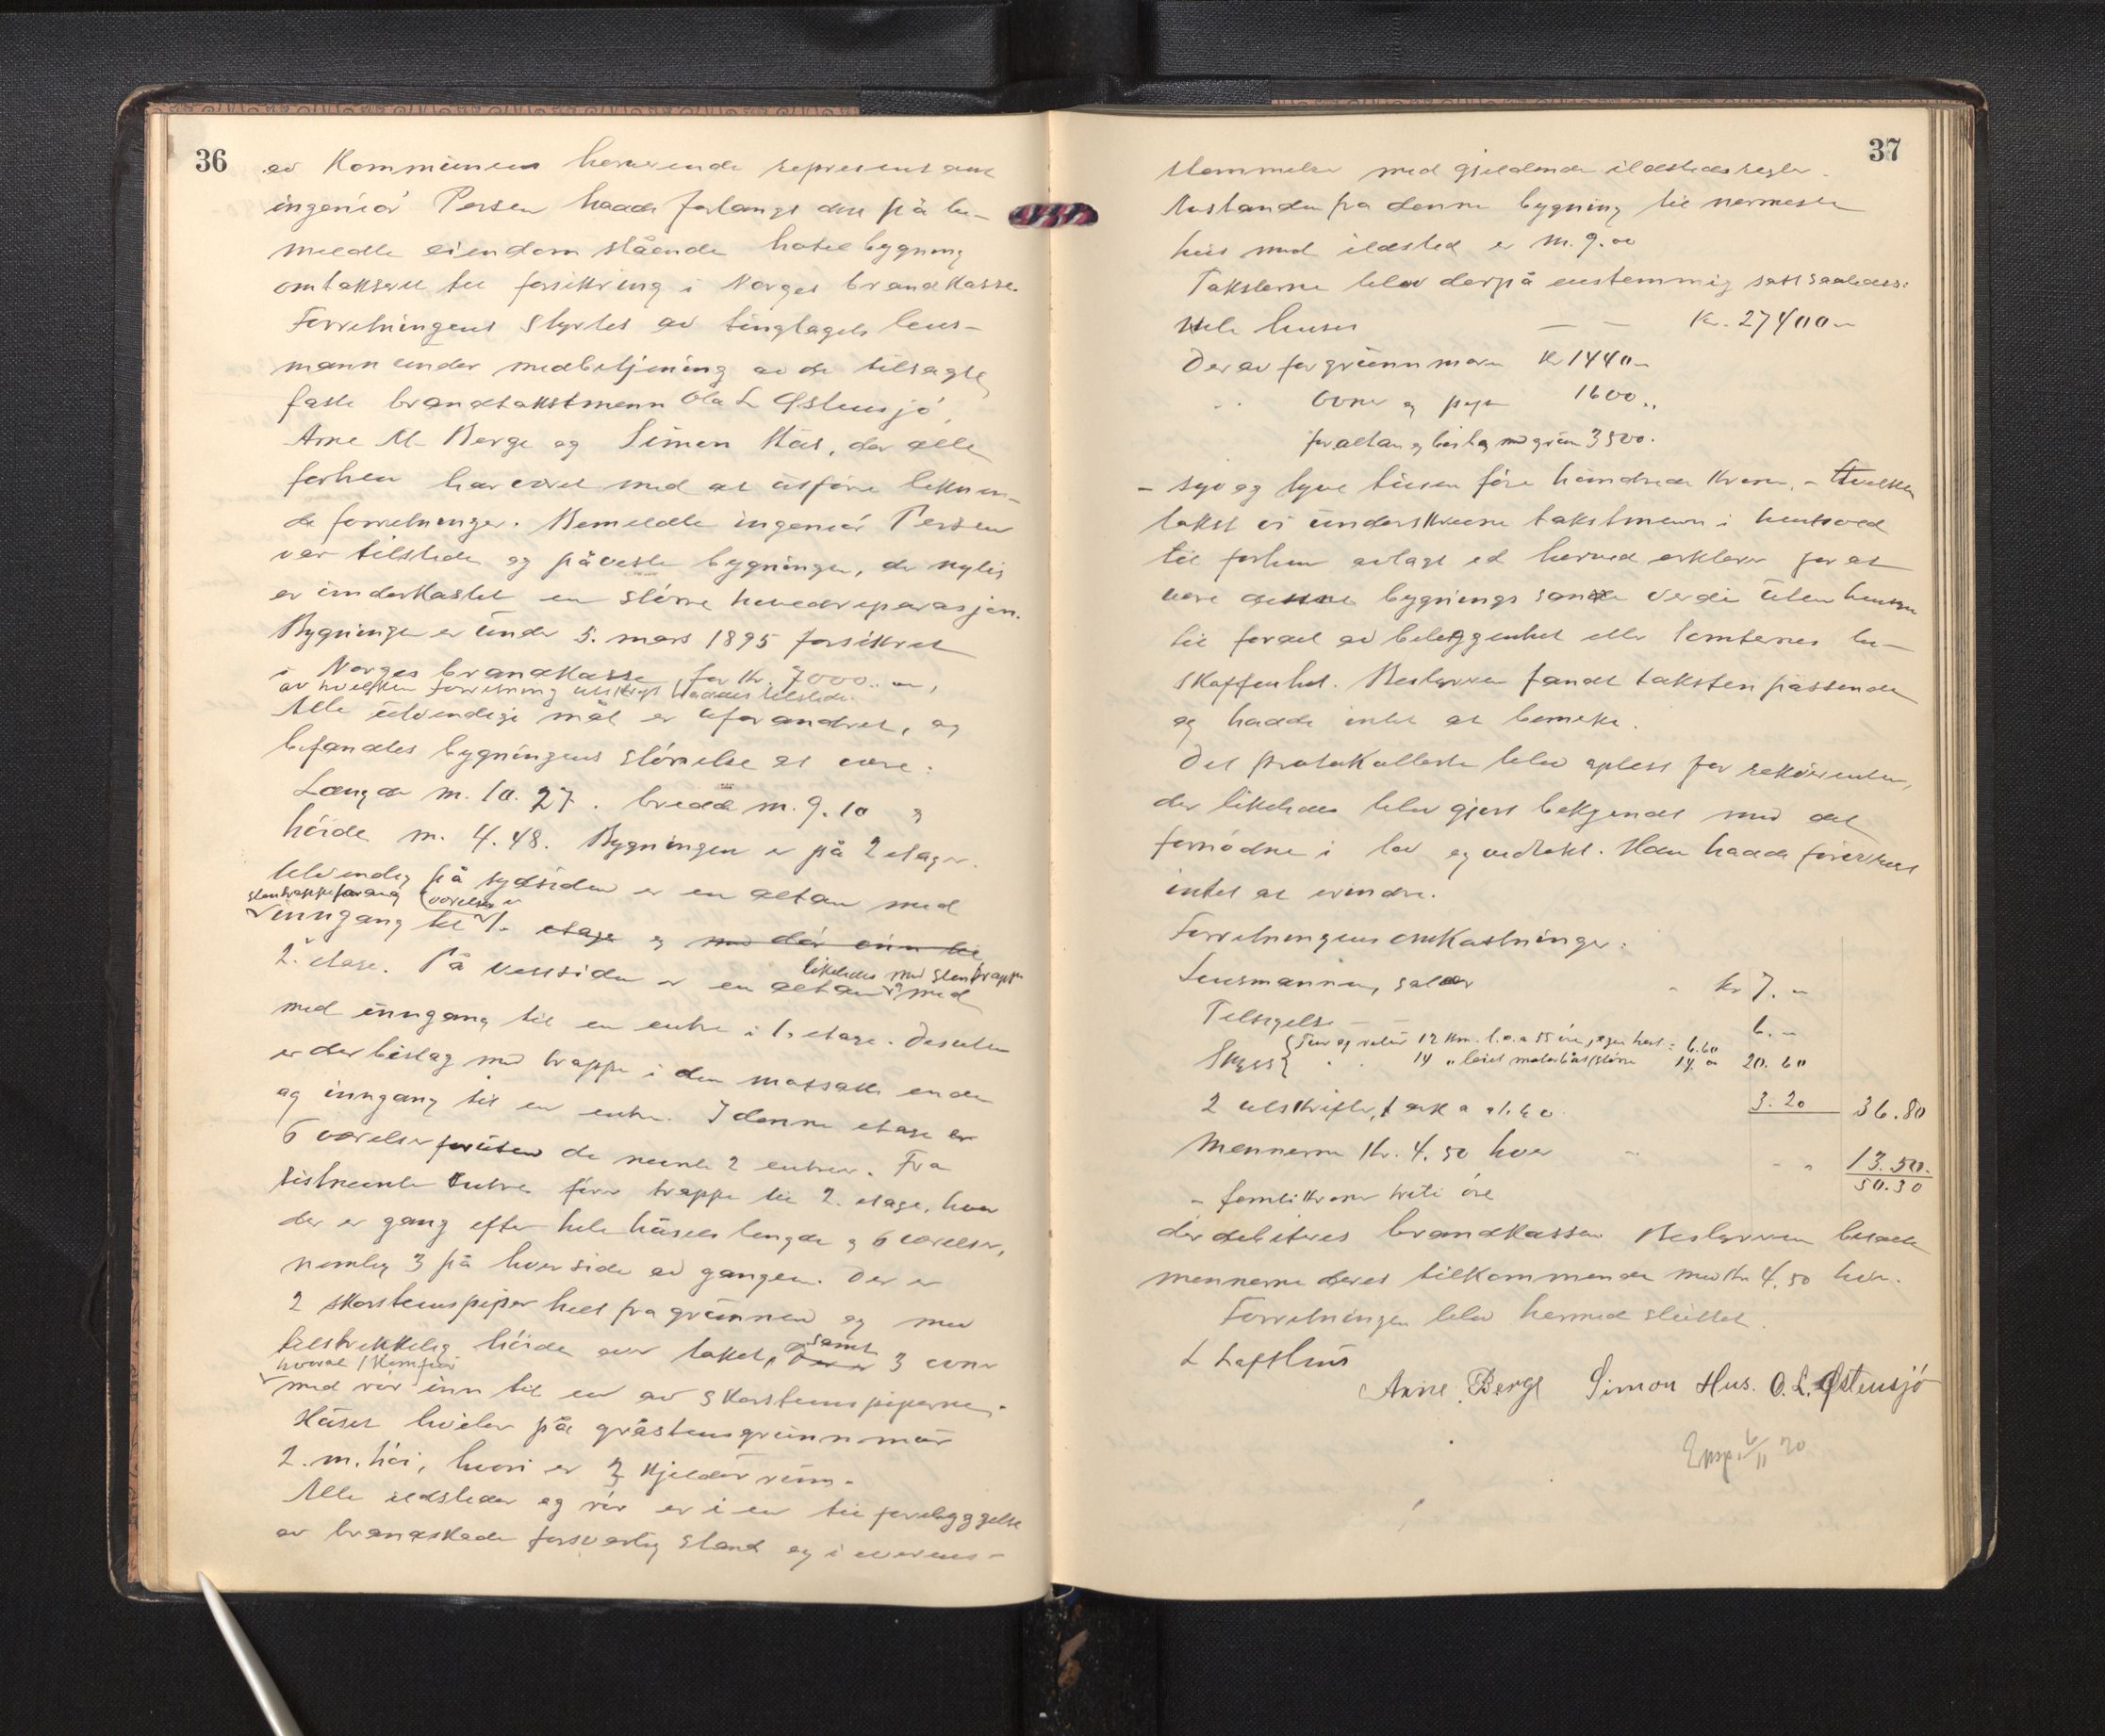 36
av Kommunens herværende representant
ingeniør Persen hadde forlangt den på be-
meldte eiendom stående hotelbygning
omtaksert til forsikring i Norges brandkasse.
Forretningen styrtes av tinglagets lens-
mann under medbetjening av de tilsagte
faste brandtakstmenn Ola L Østensjö,
Arne M. Berge og Simon Hus, der alle
forhen har været med at utføre liknen-
de forretninger. Bemeldte ingeniør Persen
var tilstede og påviste bygningen, der nylig
er underkastet en større hovedreparasjon.
Bygningen er under 5. mars 1895 forsikret
i Norges brandkasse for Kr. 7000..-,
av hvilken forretning utskrift haddes tilstede.
Alle utvendige mål er uforandret, og
befandtes bygningens størrelse at være:
Længde m. 10.27. bredde m. 9.10 og
höide m. 4.48. Bygningen er på 2 etager.
Utvendig på sydsiden er en altan med
stentrapp foran og værelser
inngang til 1. etage og med dør inn til
2. etage. På vestsiden er en altan med
likeledes med stentrapp
med inngang til en entre i 1. etage. Desuten
er der bislag med trappe i den motsatte ende
og inngang til en entre. I denne etage er
6 værelser foruten de nevnte 2 entreer. Fra
sistnevnte entre fører trappe til 2. etage, hvor
der er gang efter hele husets lengde og 6 værelser,
nemlig 3 på hver side av gangen. Der er
2 skorstenspiper helt fra grunnen og med
tilstrekkelig höide over taket, samt 3 ovner
hvorav 1 Komfur
med rør inn til en av skorstenspiperne.
Huset hviler på gråstensgrunnmur
2. m. høi, hvori er 2 kjelderrum.
Alle ildsteder og rør er i en til forebyggelse
av brandskade forsvarlig stand og i overens-
37
stemmelse med gjeldende ildstedsregler.
Avstanden fra denne bygning til nermeste
hus med ildsted er m. 9.00
Taksterne blev derpå enstemmig satt saaledes:
Hele huset — — Kr. 27400-
Derav for grunnmuren Kr 1440-
" Ovner og piper 1600..
for altan og bislag med grun 3500.
- syv og tyve tusen fire hundrede Kroner. - Hvilken
takst vi underskrevne takstmenn i henhold
til forhen avlagt ed herved erklærer for at
være denne bygnings sande verdi uten hensyn
til fordel av beliggenhet eller tomternes be-
skaffenhet. Bestyreren fandt taksten passende
og hadde intet at bemerke.
Det protokollerte blev oplest for rekvirenten,
der likeledes blev gjort bekjendt med det
fornødne i lov og vedtekt. Han hadde forøvrig
intet at erindre.
Forretningens omkostninger:
Lensmannens salær " kr 7. -
Tilsigelse — — 6. -
Skyss { Tur og retur 12 Km. l.v. a 55 øre, egen hest = 6.60
" " 14 " leiet motorbåt större 14. " 20. 60
2 utskrifter, 1 ark a 1.60 3.20 36.80
Mennerne Kr. 4.50 hver " - " 13.50.
50.30
- femti kroner treti øre
der debiteres brandkassen Bestyreren betalte
mennerne deres tilkommende med Kr. 4.50 hver.
Forretningen blev hermed sluttet.
L Lofthus
Arne Berge Simon Hus. O. L. Østensjö
Exp. 6/11 30